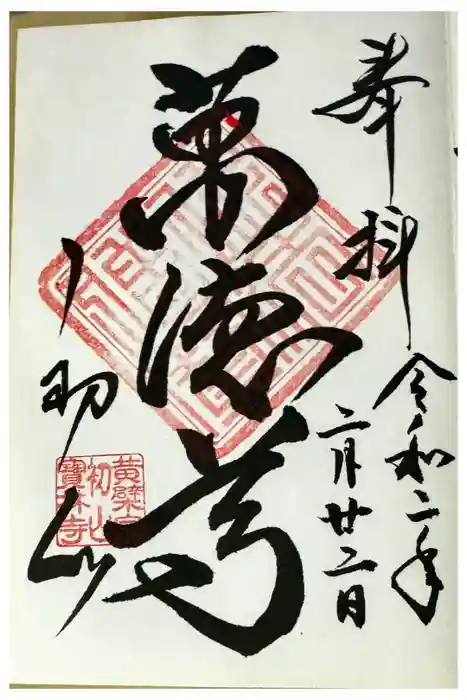 奉拝
令和二年
二月廿二日
萬徳尊
初山
黄檗宗
初山
寶林寺